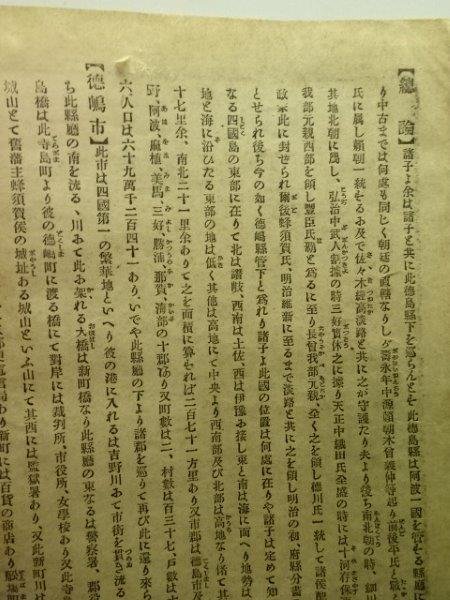 【總論】諸子よ余は諸子と共に此德島縣下を巡らんとを此德島縣は阿波一國を管せる縣に
り中古までは何處も同じく朝廷の直轄なりしが壽永年中源賴朝木曾義仲等起り前後平氏と戰
氏に屬し賴朝一統せるお及で佐々木經高淡路と共に之が守護たり夫より後ち南北朝の時、細川
其地北朝に屬し、弘治中武人割據の時三好實休之に據り天正中織田氏全盛の時には十河存保
我部元親西部を領し豐臣氏勃と爲るに至り長曾我部元親、全く之を領し德川氏一統して諸侯
政衆此に封せられ爾後蜂須賀氏、明治維新に至るまで淡路と共に之を領し明治の初、府縣分
とせられ後ち今の如く德嶋縣管下と爲れり諸子よ此國の位置は何處に在りや諸子は定めて知
なる四國島の東部に在りて北は讚岐、西南は土佐、西は伊豫お接し東と南は海に面へり地勢は
地と海に沿ひたる東部の地は低く其他は高地にて中央より西南部及び北部は高地なり偖て其
十七里余、南北二十一里余ありて之を面積に算せれば二百七十一方里あり又市郡は德島市及
野、阿波、麻植、美馬、三好、勝浦、那賀、海部の十郡あり又町數は二、村數は百三十七、戶數は
六、人口は六十九萬千二百四十一あり、いでや此縣廳の下より諸郡を巡りて再び此に還り來ら
【德嶋市】此市は四國第一の繁華地といへり彼の港に入れるは吉野川あて市街を貫き流る
ち此縣廳の南を流る、川あて此お架れる大橋は新町橋なり此縣廳の東なるは警察署、郡役
島橋は此寺島町より彼の德嶋町に渡る橋にて對岸には裁判所、市役所、女學校あり又此寺
城山とて舊藩主蜂須賀侯の城址ある城山といふ山にて其西には監獄署あり、又此新町川
電信局あり新町には百貨の商店あり